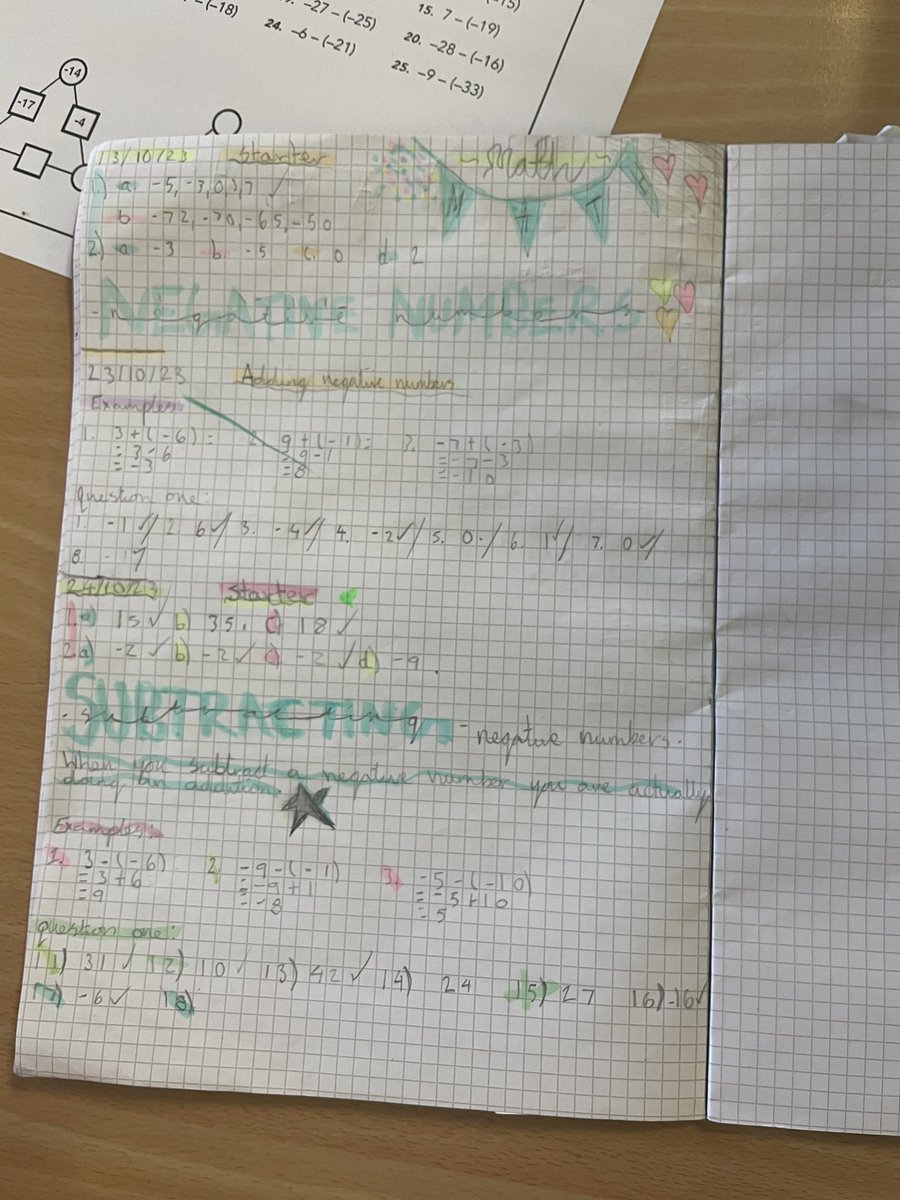 -(-18)
-27 - (-25)
24. -6 - (-21)
15. 7 - (-19)
20. -28 - (-16)
25. -9 - (-33)
-14
-17
-4
13/10/23 Starter
~ Math ~
1.) a -5, -3, 0, 7 ✓
b -72, -70, -65, -50
2) a -3 b -5 c. 0 d. 2
NEGATIVE NUMBERS
- negative numbers -
23/10/23 Adding negative numbers
Examples:
1. 3 + (-6) = 2. 9 + (-1) = 3. -7 + (-3)
= 3 - 6 = 9 - 1 = -7 - 3
= -3 = 8 = -10
question one:
1. -1 ✓/ 2. 6 ✓/ 3. -4 ✓/ 4. -2 ✓/ 5. 0 · / 6. 1 ✓/ 7. 0 ✓/
8. -17
24/10/23 Starter
1.a) 15 ✓ b) 35. c) 18 ✓
2.a) -2 ✓ b) -2 ✓ c) -2 ✓ d) -9.
SUBTRACTING
- subtracting - negative numbers.
When you subtract a negative number you are actually
doing an addition.
Examples:
1. 3 - (-6) 2. -9 - (-1) 3. -5 - (-10)
= 3 + 6 = -9 + 1 = -5 + 10
= 9 = -8 = 5
question one:
11) 31 ✓ 12) 10 ✓ 13) 42 ✓ 14) 24 15) 27 16) -16 ✓
17) -6 ✓ 18)